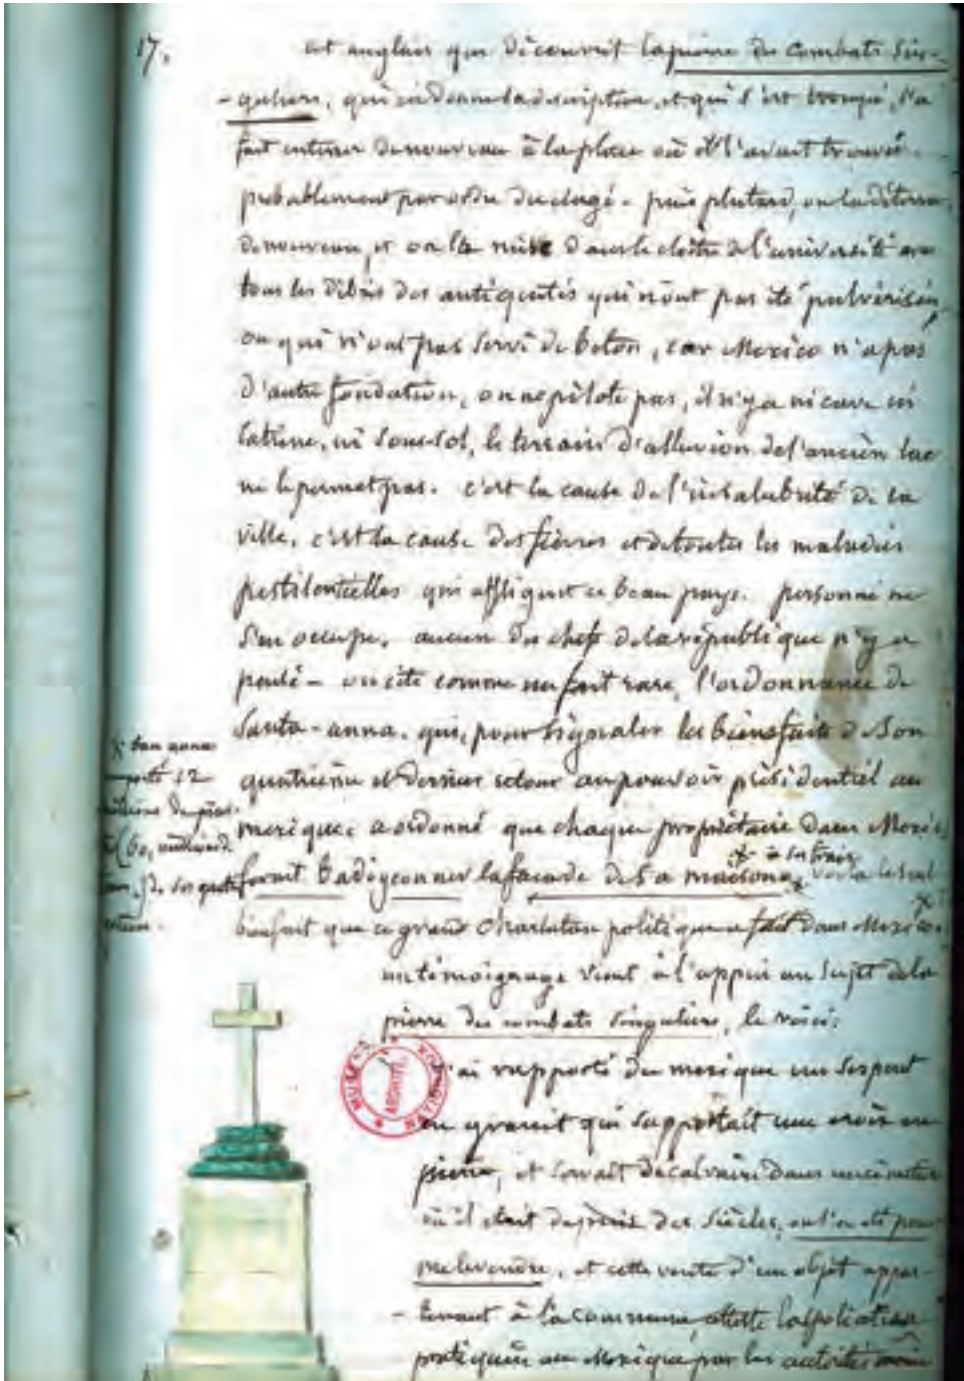 17.
cet anglais qui découvrit la pierre des combats sin-
-guliers, qui en donna la description, et qui s'est trompé, l'a
fait enterrer de nouveau à la place où il l'avait trouvée.
probablement par ordre du clergé. puis plutard, on la déterra
de nouveau, et on la mise dans le cloître de l'université avec
tous les débris des antiquités qui n'ont pas été pulvérisés,
ou qui n'ont pas servi de béton, car Mexico n'a pas
d'autre fondation, on ne pilote pas, il n'y a ni cave ni
latrine, ni sous-sol, le terrain d'alluvion de l'ancien lac
ne le permet pas. c'est la cause de l'insalubrité de la
ville, c'est la cause des fièvres et de toutes les maladies
pestilentielles qui affligent ce beau pays. personne ne
s'en occupe. aucun des chefs de la république n'y a
pensé - on cite comme un fait rare, l'ordonnance de
Santa-anna. qui, pour signaler les bienfaits de son
quatrième et dernier retour au pouvoir présidentiel au
mexique; a ordonné que chaque propriétaire dans Mexico
ferait badigeonner la façade de sa maison x à ses frais, voila le seul
bienfait que ce grand charlatan politique a fait dans Mexico. x
emporté 12
millions de pias-
(60,
de ses quatre
un témoignage vient à l'appui au sujet de la
pierre des combats singuliers, le voici:
J'ai rapporté du mexique un serpent
en granit qui supportait une croix en
pierre, et servait de calvaire dans un cimetière
où il était depuis des siècles, on l'a ôté pour
me le vendre, et cette vente d'un objet appar-
-tenant à la commune, atteste la spoliation
pratiquée au Mexique par les autorités